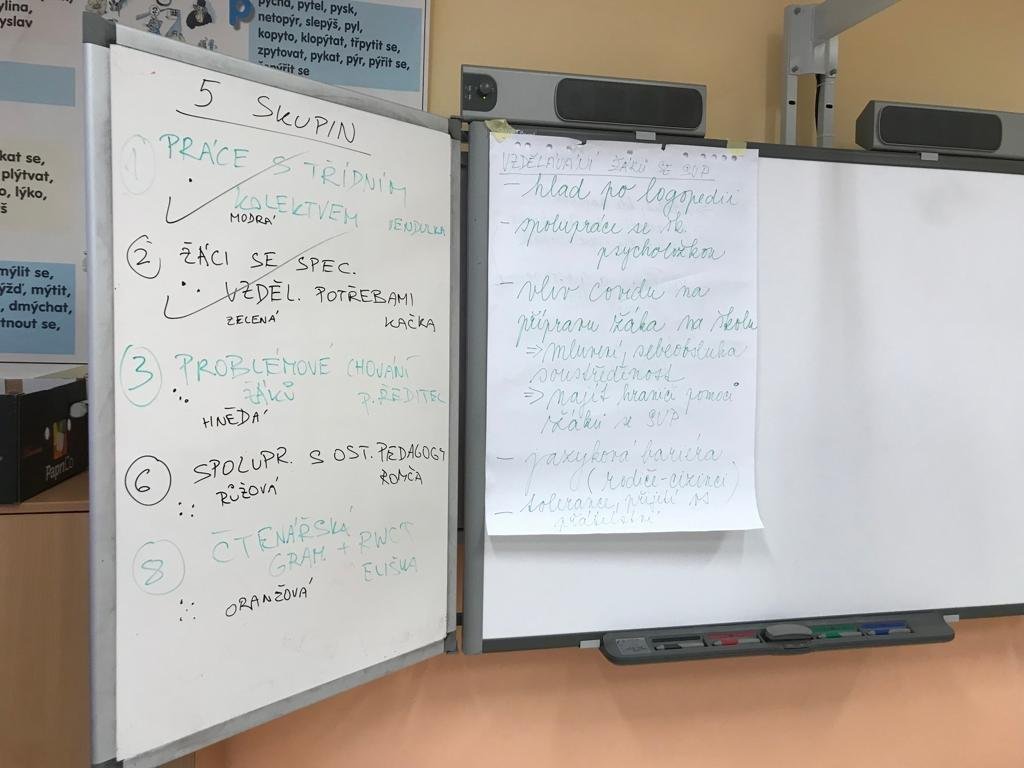 ylina,
yslav
pýcha, pytel, pysk,
netopýr, slepýš, pyl,
kopyto, klopýtat, třpytit se,
zpytovat, pykat, pýr, pýřit se,
čepýřit se
kat se,
plýtvat,
o, lýko,
š
mýlit se,
mýtit,
dmýchat,
tnout se,
PapriCo
5 SKUPIN
1 PRÁCE S TŘÍDNÍM
KOLEKTVEM
MODRÁ VENDULKA
2 ŽÁCI SE SPEC.
VZDĚL. POTŘEBAMI
ZELENÁ KAČKA
3 PROBLÉMOVÉ CHOVÁNÍ
ŽÁKŮ P. ŘEDITEL
HNĚDÁ
6 SPOLUPR. S OST. PEDAGOGY
RŮŽOVÁ ROMČA
8 ČTENÁŘSKÁ
GRAM + RWCT
ELIŠKA
ORANŽOVÁ
VZDĚLÁVÁNÍ ŽÁKŮ SE SVP
- hlad po logopedii
- spolupráce se šk.
psycholožkou
- vliv covidu na
přípravu žáka na školu
⇒ mluvení, sebeobsluha
soustředěnost
⇒ najít hranici pomoci
žáků s SVP
- jazyková bariéra
(rodiče-cizinci)
- tolerance, přijetí